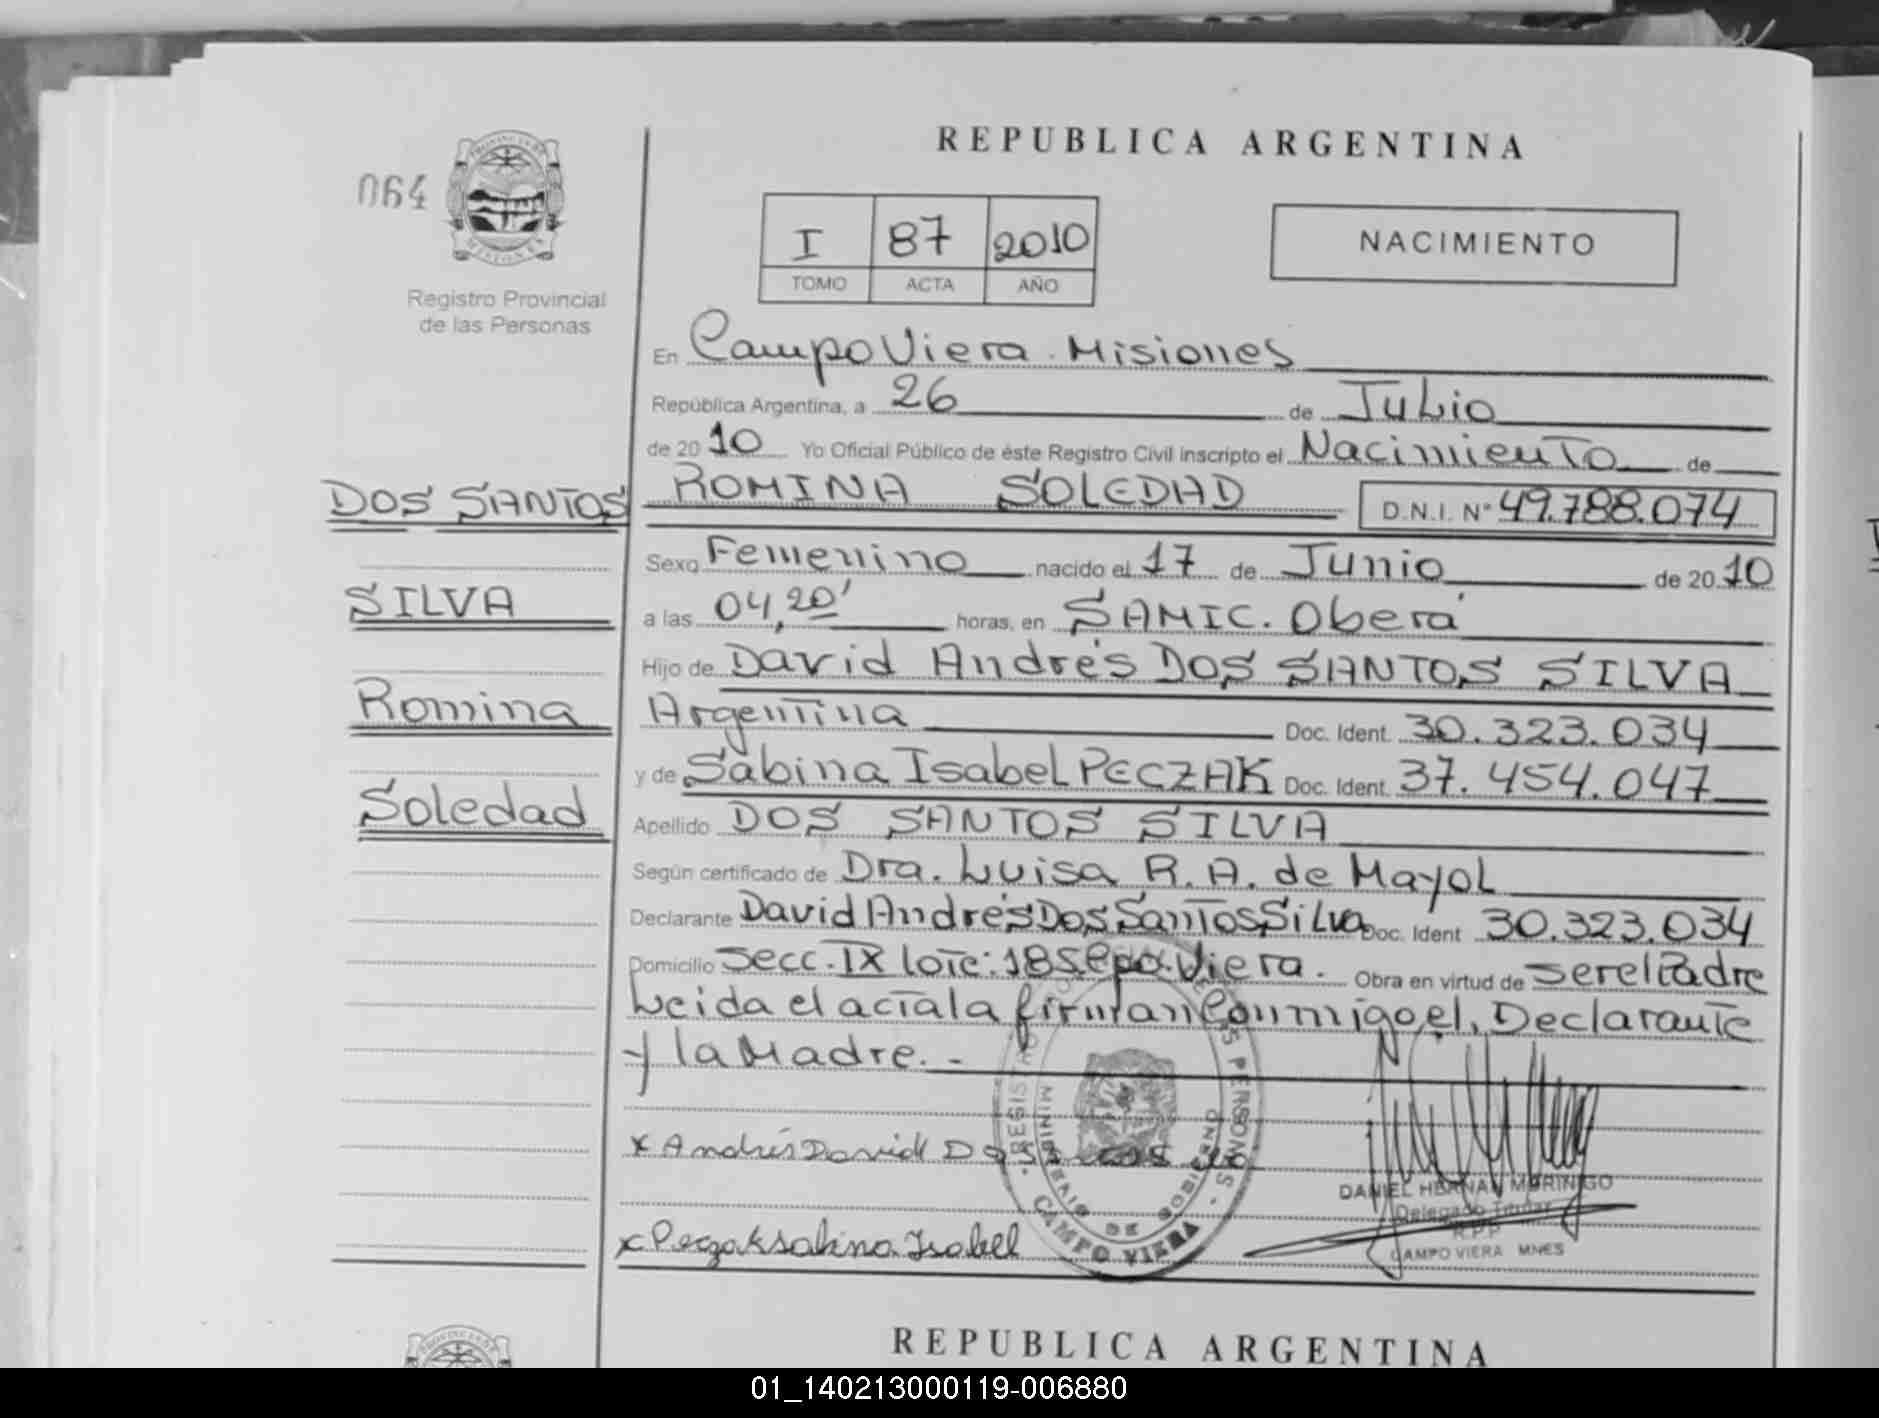 REPUBLICA ARGENTINA
064
PROVINCIA DE
MISIONES
Registro Provincial
de las Personas
I 87 2010
TOMO ACTA AÑO
NACIMIENTO
En Campo Viera. Misiones
República Argentina, a 26 de Julio
de 2010 Yo Oficial Público de éste Registro Civil inscripto el Nacimiento de
DOS SANTOS
ROMINA SOLEDAD D.N.I. N° 49.788.074
Sexo Femenino nacido el 17 de Junio de 2010
SILVA
a las 04,20' horas, en SAMIC. Oberá
Hijo de David Andrés DOS SANTOS SILVA
Romina
Argentina Doc. Ident. 30.323.034
y de Sabina Isabel PECZAK Doc. Ident. 37.454.047
Soledad
Apellido DOS SANTOS SILVA
Según certificado de Dra. Luisa R. A. de Mayol
Declarante David Andrés Dos Santos Silva Doc. Ident 30.323.034
Domicilio Secc. IX lote: 185 Cpo. Viera. Obra en virtud de ser el Padre
Leida el acta la firman Conmigo el, Declarante
y la Madre. -
REGISTRO PERSONAS
MINISTERIO DE GOBIERNO
CAMPO VIERA
x Andrés David Dos
x Peczak sabina Isabel
DANIEL HERNAN MORINIGO
Delegado Titular
R.P.P
CAMPO VIERA MNES
REPUBLICA ARGENTINA
01_140213000119-006880